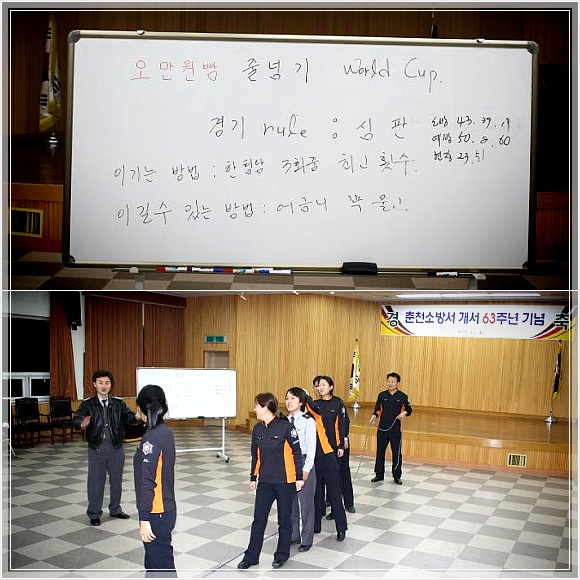 오만원빵 줄넘기 World Cup.
경기 rule : 심판
이기는 방법 : 한팀당 3회중 최고 횟수.
이길수 있는 방법 : 어금니 꽉 물고!.
43. 39. 19
예방 50. 8. 60
23. 51
경 춘천소방서 개서 63주년 기념 축